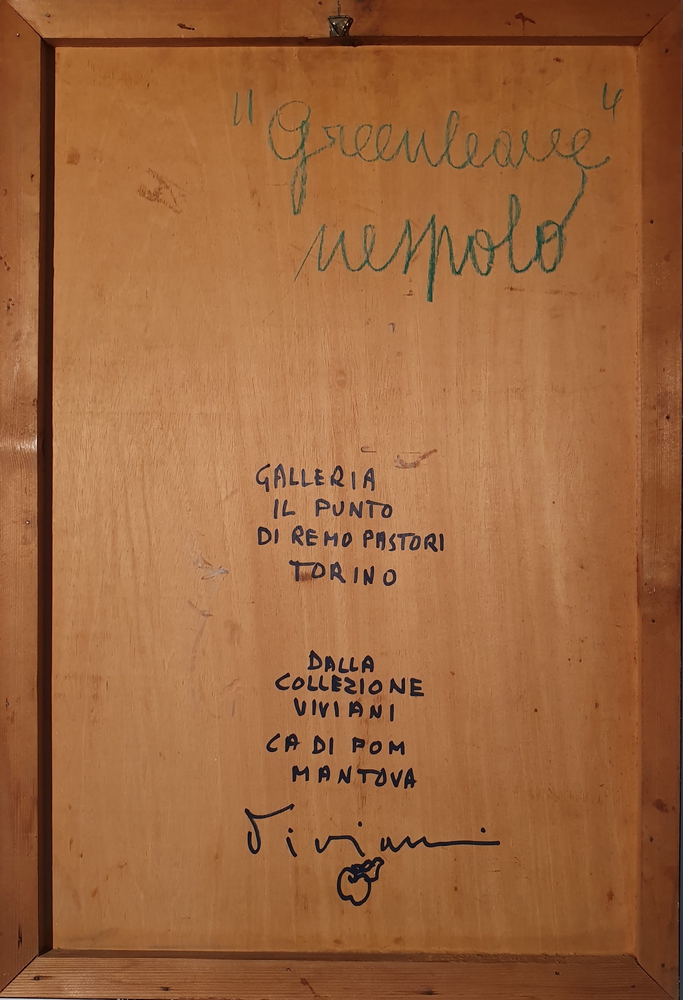 "Greenleave"
nespolo
GALLERIA
IL PUNTO
DI REMO PASTORI
TORINO
DALLA
COLLEZIONE
VIVIANI
CA DI POM
MANTOVA
Viviani